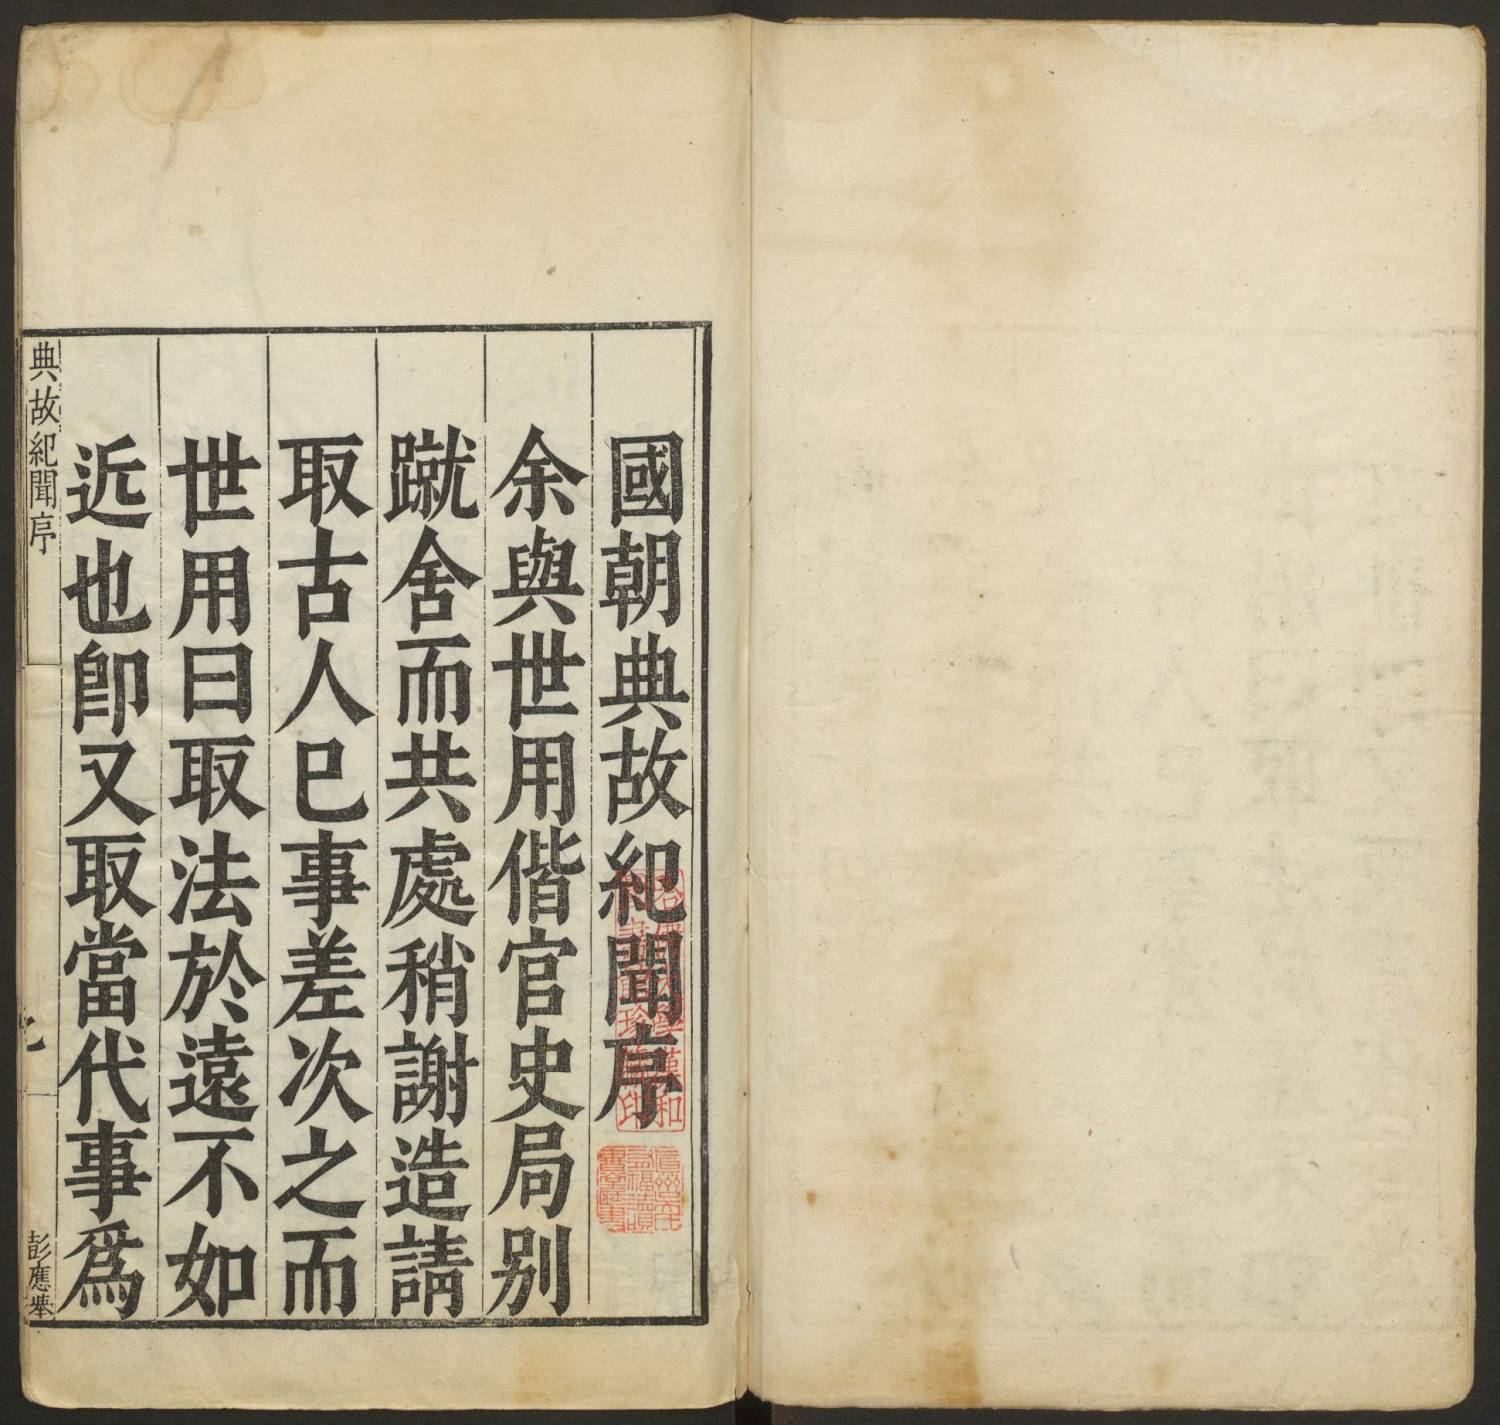 國朝典故紀聞序
余與世用偕官史局别
蹴舍而共處稍謝造請
取古人已事差次之而
世用曰取法於遠不如
近也卽又取當代事爲
典故紀聞序
彭應舉
哈佛大學漢和
圖書館珍藏印